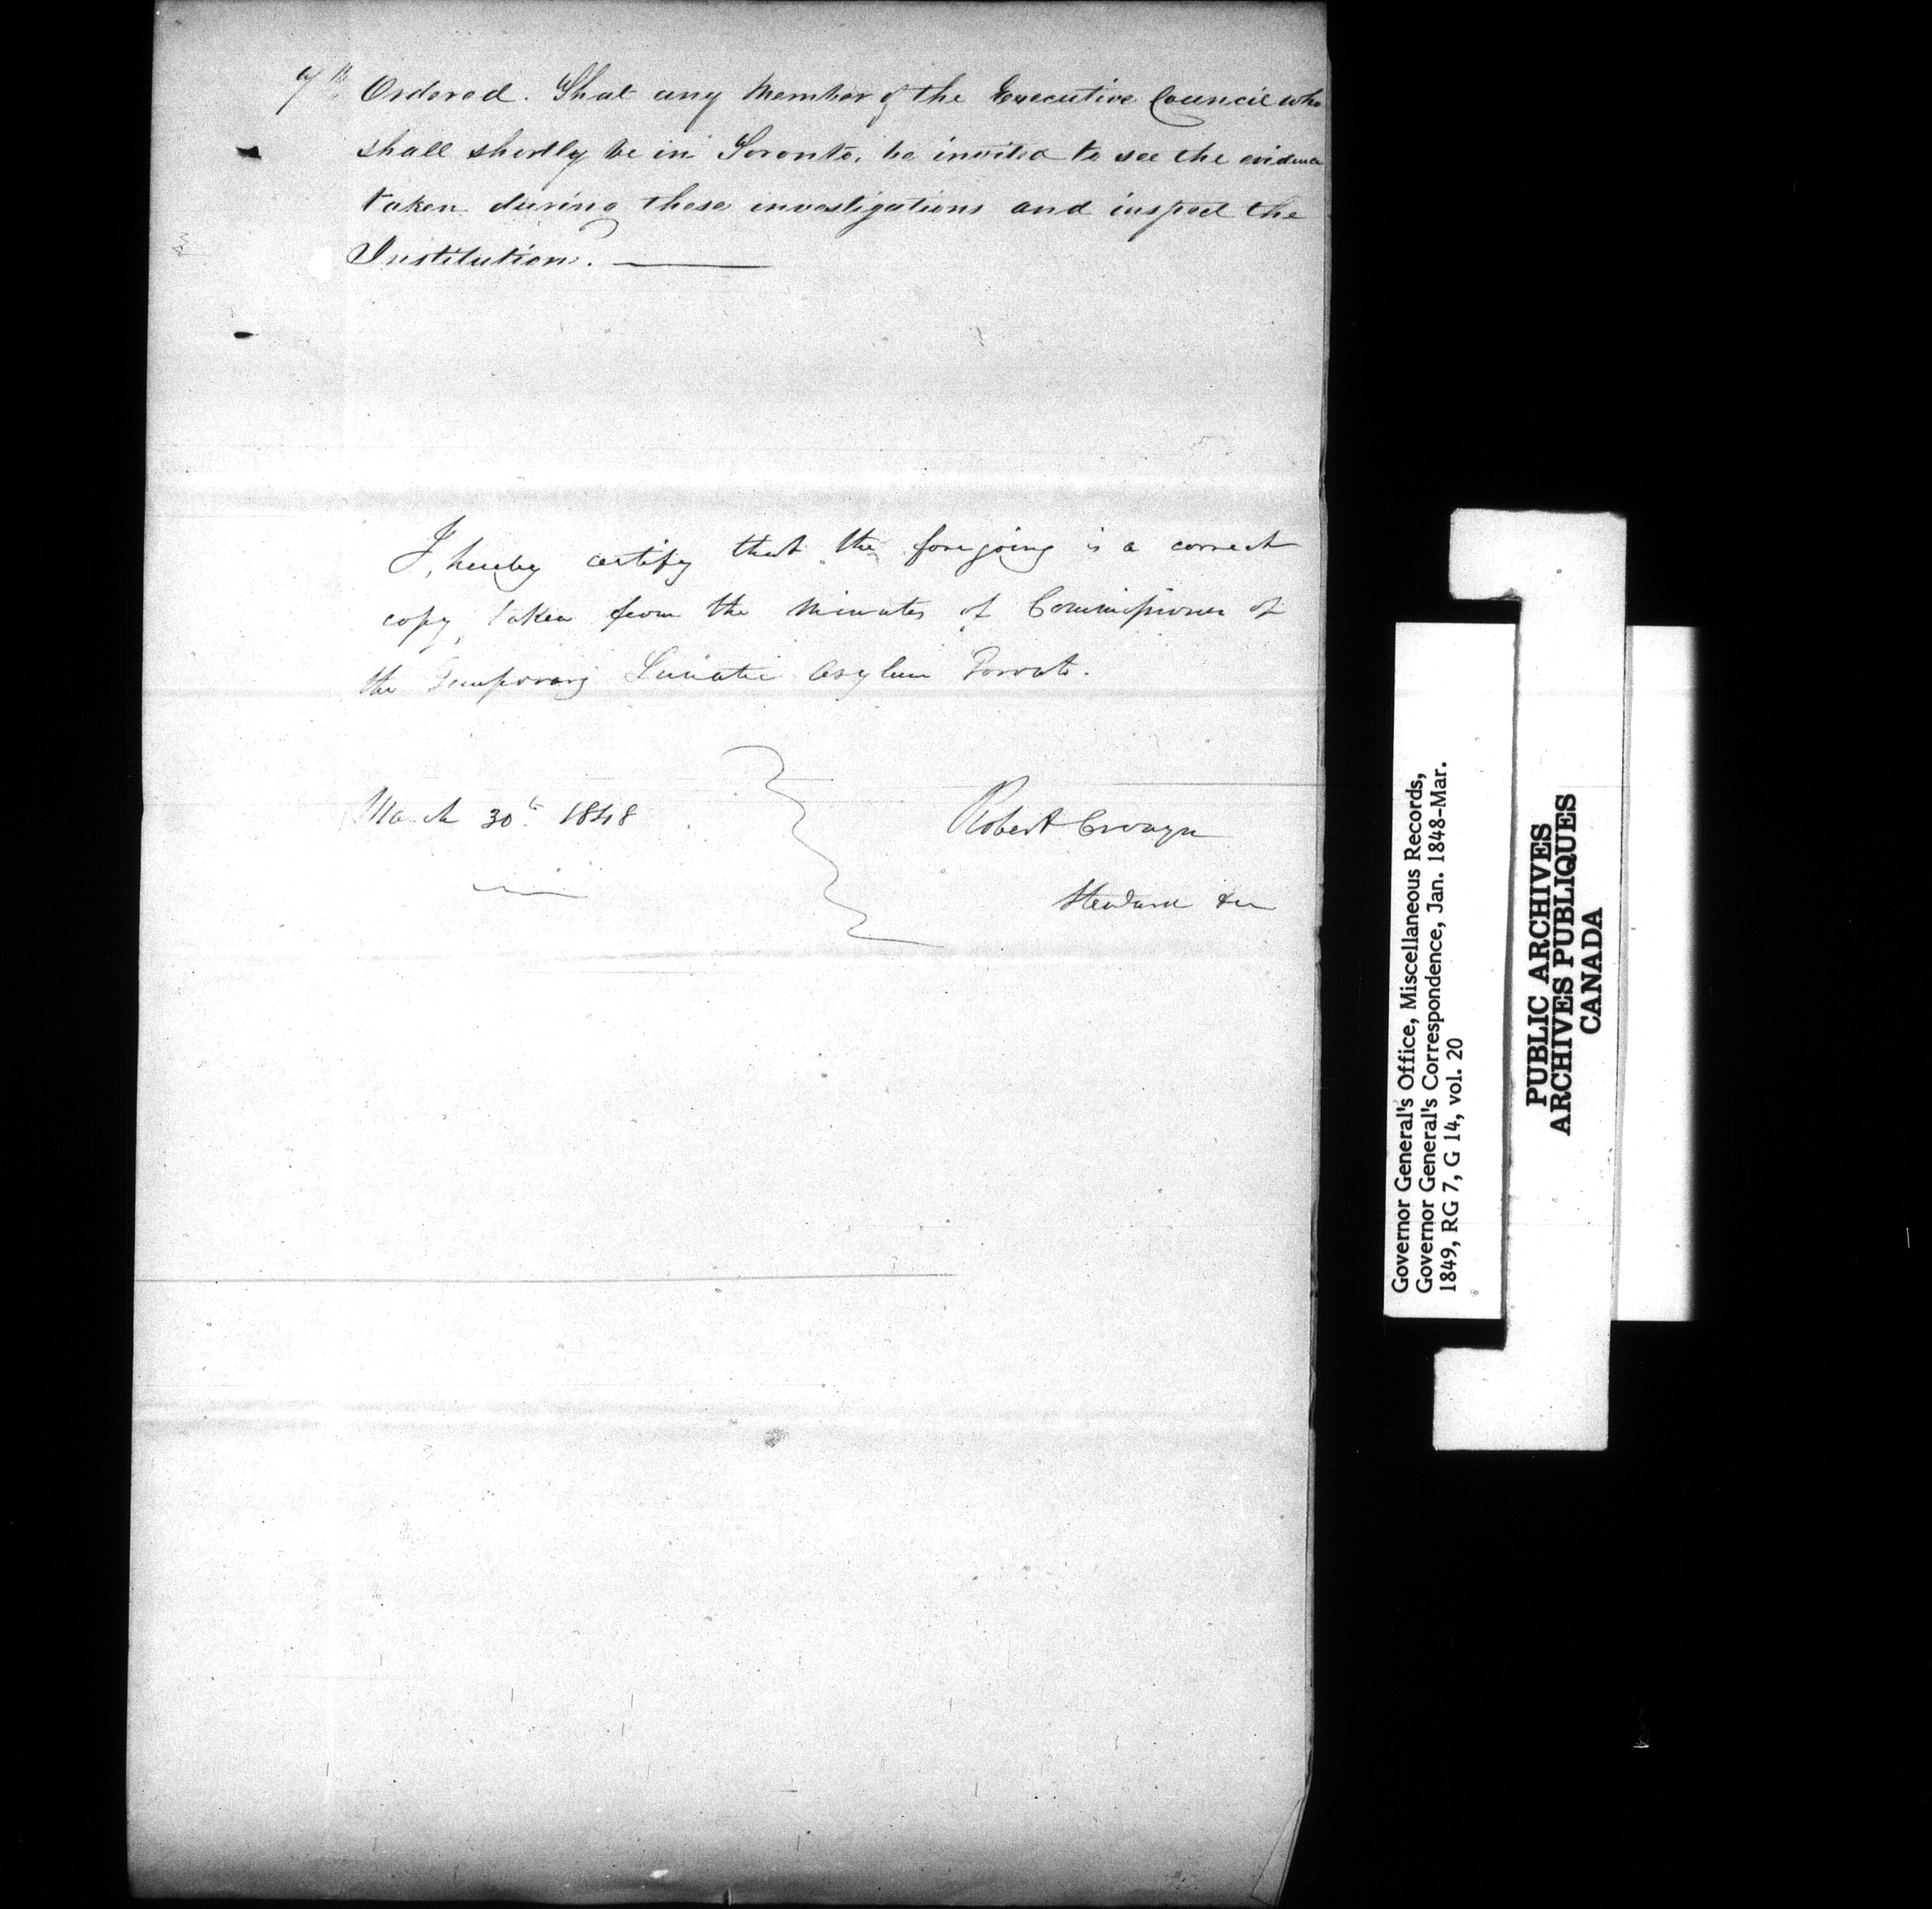 7th Ordered. That any Member of the Executive Council who
shall shortly be in Toronto, be invited to see the evidence
taken during these investigations and inspect the
Institution.
I, hereby certify that the foregoing is a correct
copy, taken from the Minutes of Commissioner of
the Temporary Lunatic Asylum Toronto.
March 30th 1848
Robert
Steward &c
Governor General's Office, Miscellaneous Records,
Governor General's Correspondence, Jan. 1848-Mar.
1849, RG 7, G 14, vol. 20
PUBLIC ARCHIVES
ARCHIVES PUBLIQUES
CANADA